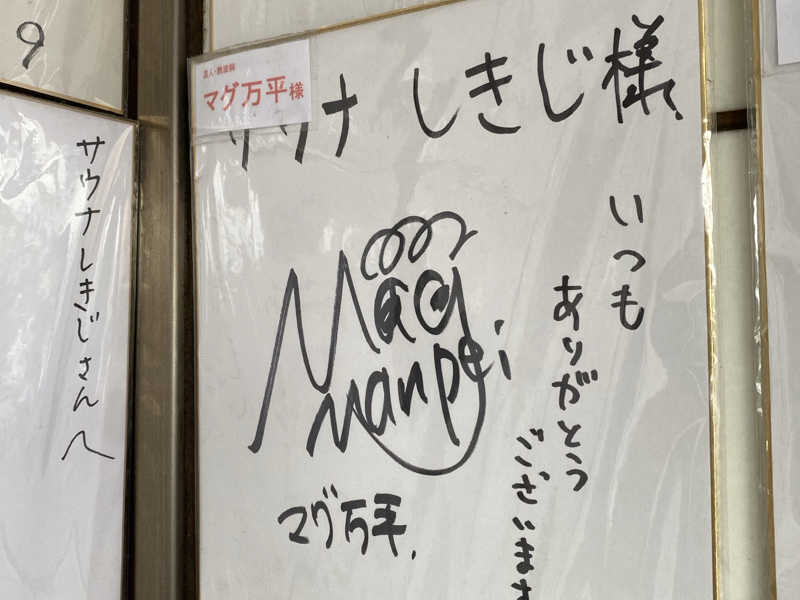 9
サウナしきじさんへ
芸人・熱波師
マグ万平様
サウナ しきじ様
いつも
ありがとう
ございます
Mag
Manpei
マグ万平.